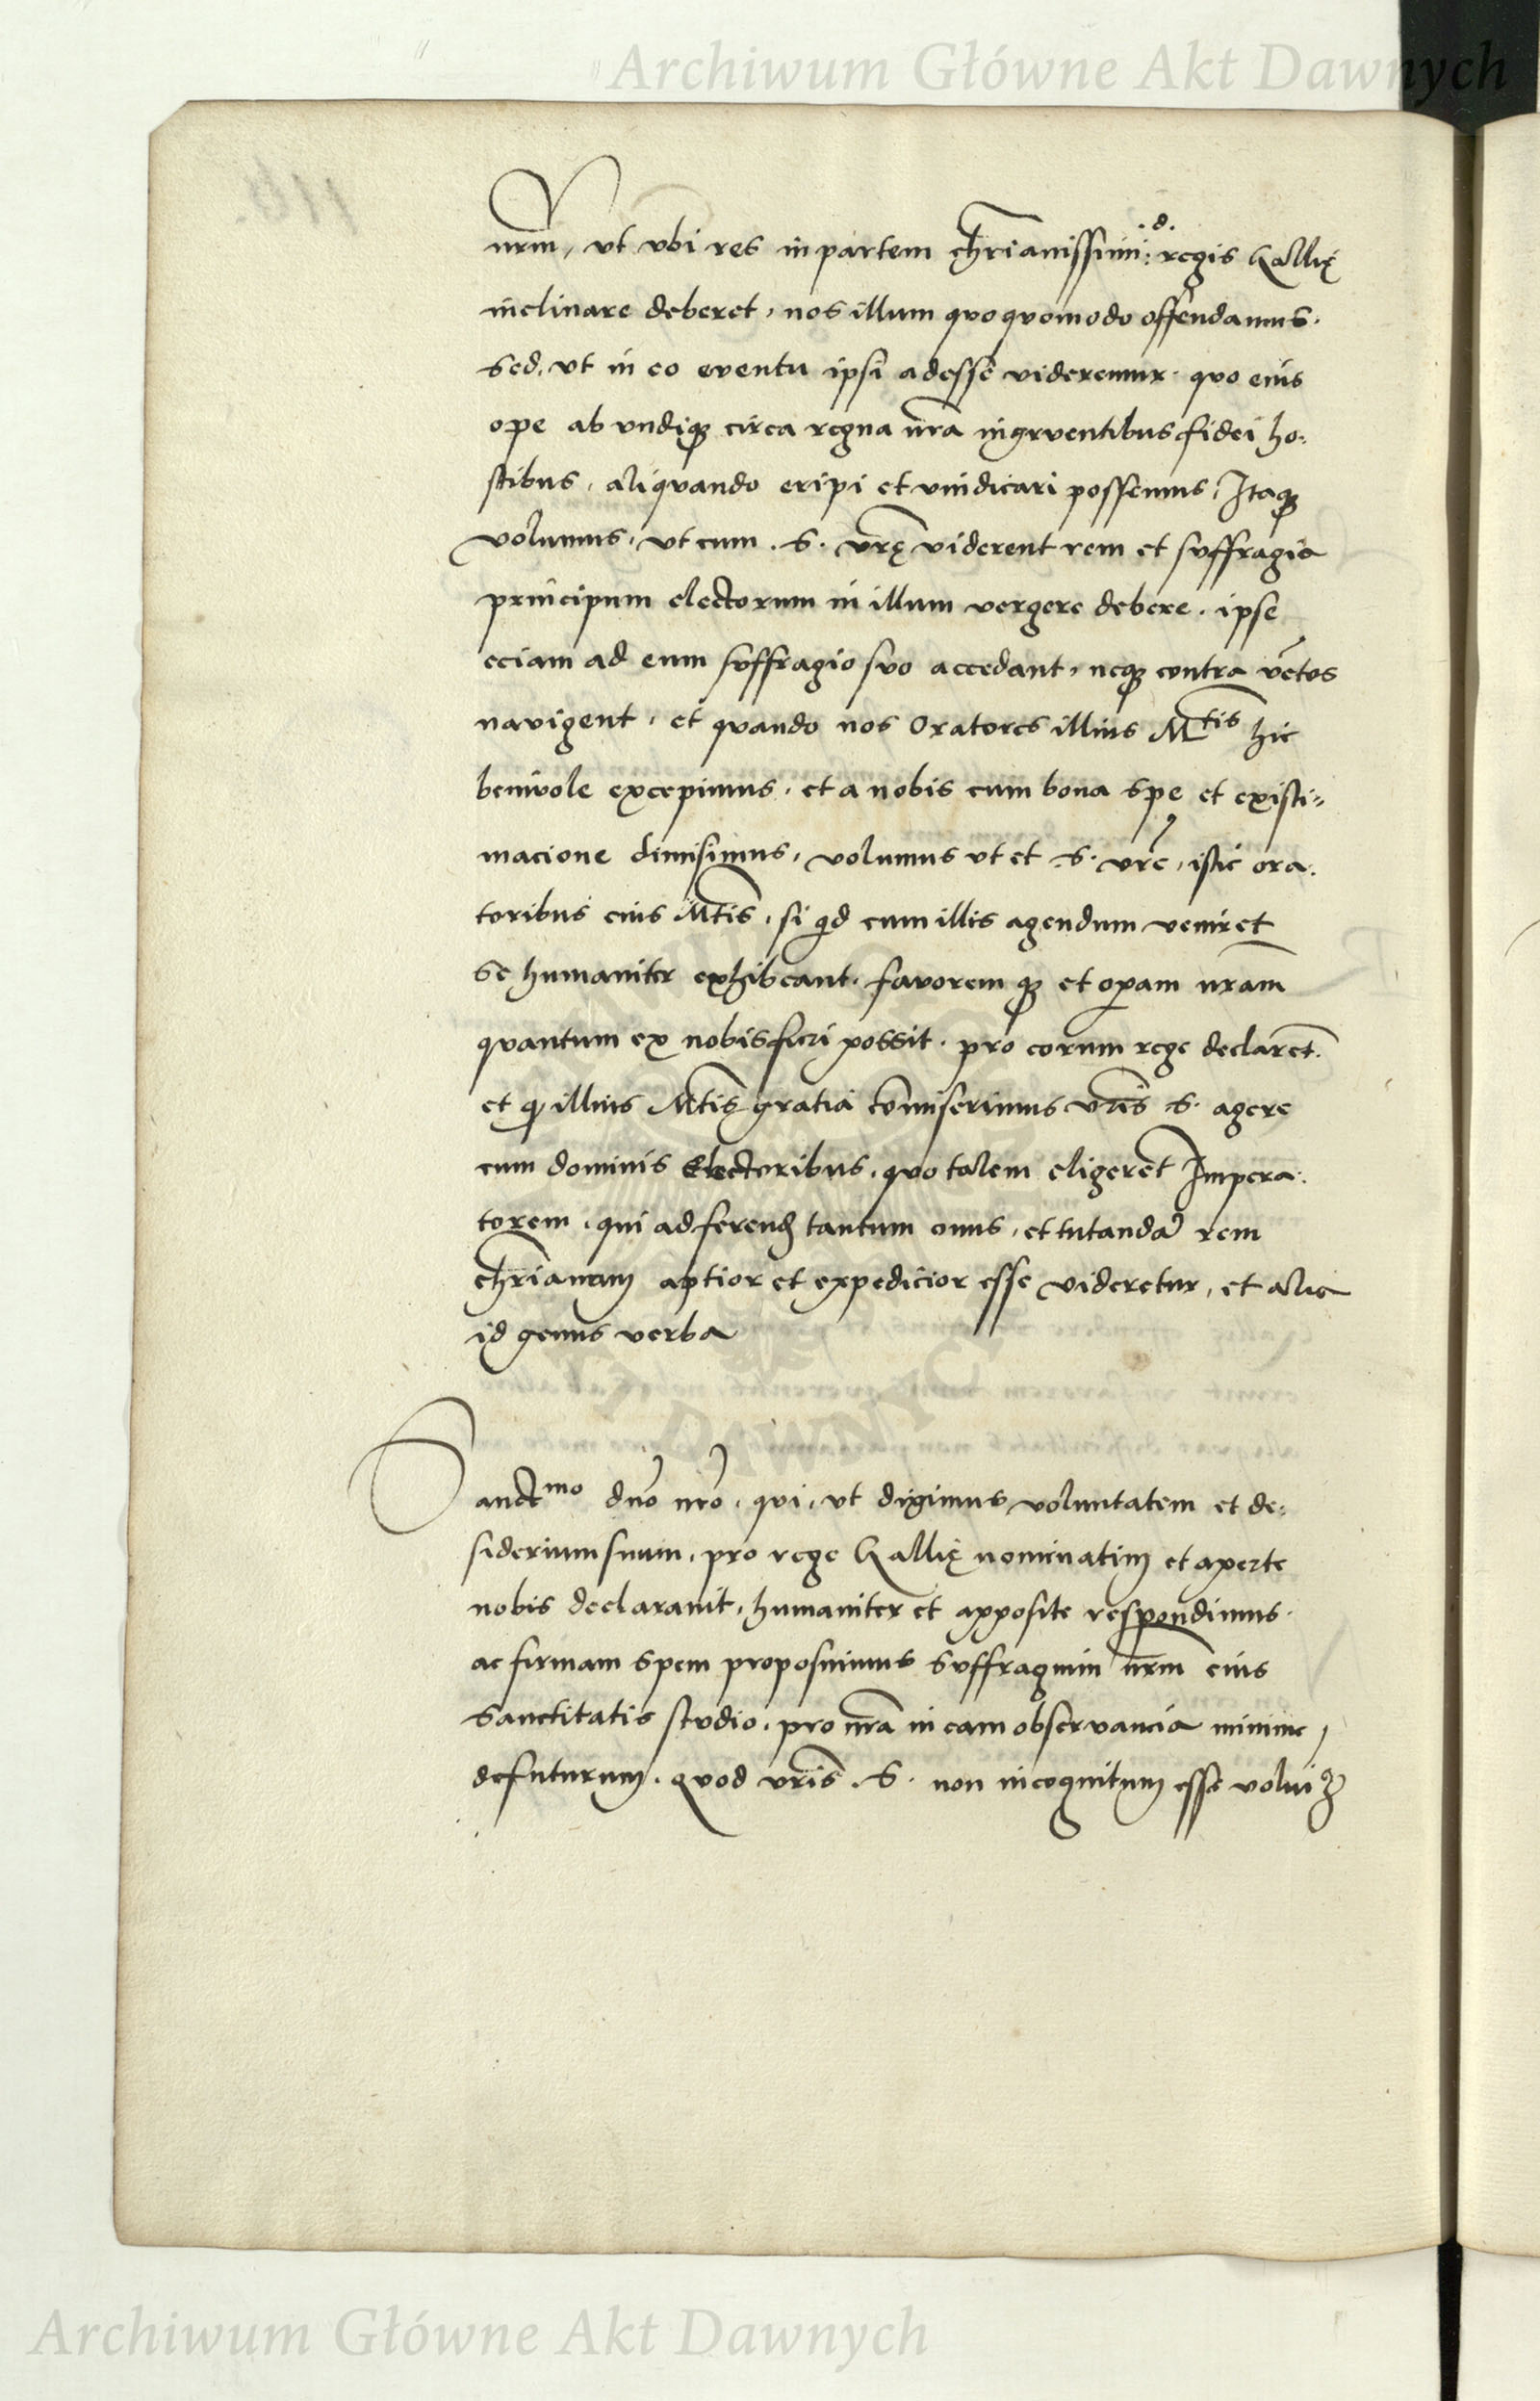 Archiwum Główne Akt Dawnych
nrm, vt vbi res in partem chrianissimi .d. regis Gallię
inclinare deberet, nos illum quoquomodo offendamus.
Sed, vt in eo eventu ipsi adesse videremur. quo eius
ope ab vndiq3 circa regna nra ingruentibus fidei ho:
stibus, aliquando eripi et vindicari possemus, Itaq3
volumus, vt cum .S. vrę viderent rem et suffragia
principum electorum in illum vergere debere. ipse
eciam ad eum suffragio suo accedant, neq3 contra vētos
navigent, et quando nos Oratores illius Mtis hic
benivole excepimus, et a nobis cum bona spe et existi=
macione dimisimus, volumus vt et .S. vre, istic ora:
toribus eius Mtis, si qd cum illis agendum veniret
se humaniter exhibeant. favorem q3 et opam nram
quantum ex nobis fieri possit. pro eorum rege declarent.
et q illius Mtis gratia comiserimus vris S. agere
cum dominis Electoribus, quo talem eligerēt Impera:
torem, qui ad ferend tantum onus, et tutandā rem
chrianam aptior et expedicior esse videretur, et alia
id genus verba
Sanctmo dno nro, qui, vt diximus voluntatem et de:
siderium suum, pro rege Gallię nominatim et aperte
nobis declaravit, humaniter et apposite respondimus.
ac firmam spem proposuimus suffragium nrm eius
Sanctitatis studio, pro nra in eam observancia minime,
defuturum. quod vris .S. non incognitum esse volui9
Archiwum Główne Akt Dawnych